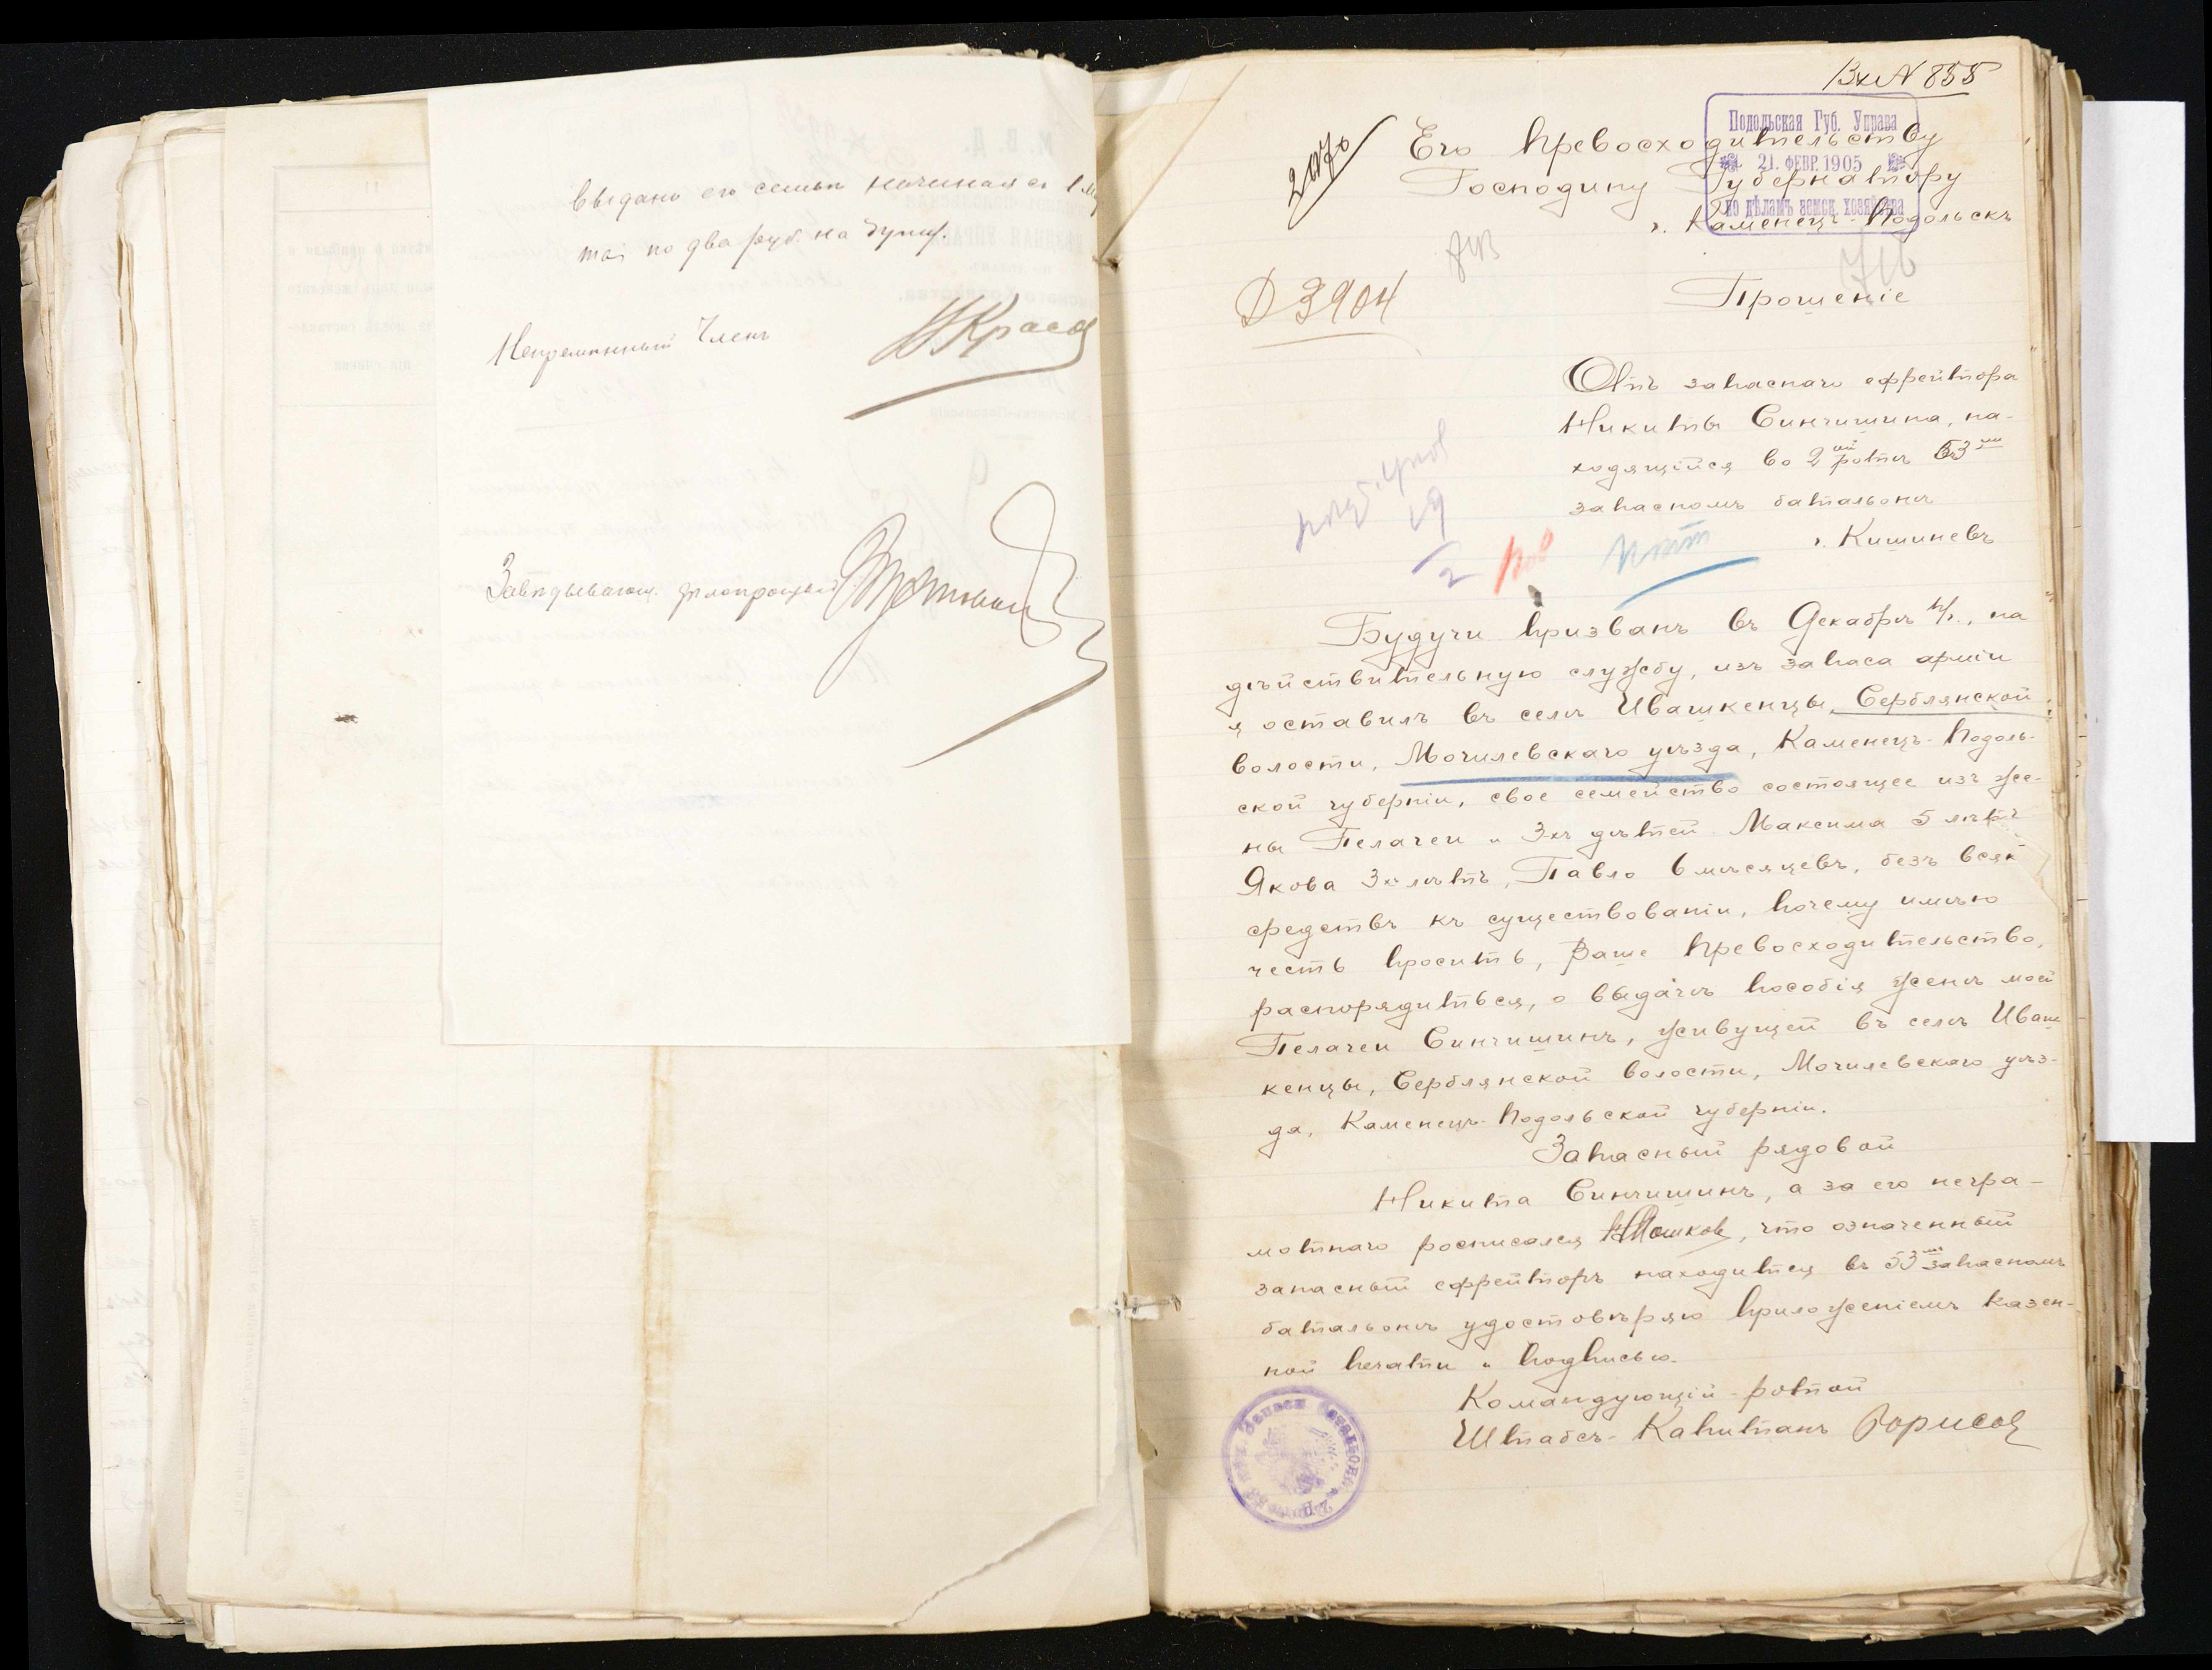 выдано его семьи начиная съ 1 мар
та по два руб. на душу.
Непремѣнный Членъ
Завѣдывающ. дѣлопроизв.
Вх. № 855
Подольская Губ. Управа
21 ФЕВР. 1905
по дѣламъ земск. хозяйства
Его Превосходительству
Господину Губернатору
г. Каменецъ-Подольскъ
Д 3904
Прошеніе
Отъ запаснаго ефрейтора
Никиты Синчишина, на-
ходящійся во 2ой ротѣ 53мъ
запасномъ батальонѣ
г. Кишиневъ
Будучи призванъ въ Декабрѣ м/г., на
дѣйствительную службу, изъ запаса арміи
я оставилъ въ селѣ Ивашкенцы, Серблянской
волости, Могилевскаго уѣзда, Каменецъ-Подоль-
ской губерніи, свое семейство состоящее изъ же-
ны Пелагеи и 3-хъ дѣтей Максима 5 лѣтъ
Якова 3хъ лѣтъ, Павло 6 мѣсяцевъ, безъ всяк
средствъ къ существованіи, почему имѣю
честь просить, Ваше Превосходительство,
распорядиться, о выдачѣ пособія женѣ моей
Пелагеи Синчишинъ, живущей въ селѣ Иваш
кенцы, Серблянской волости, Могилевскаго уѣз-
да, Каменецъ-Подольской губерніи.
Запасный рядовой
Никита Синчишинъ, а за его негра-
мотнаго росписался Мошков, что означенный
запасный ефрейторъ находится въ 53мъ запасномъ
батальонѣ удостовѣряю приложеніемъ казен-
ной печати и подписью.
Командующій ротой
Штабсъ-Капитанъ Борисов